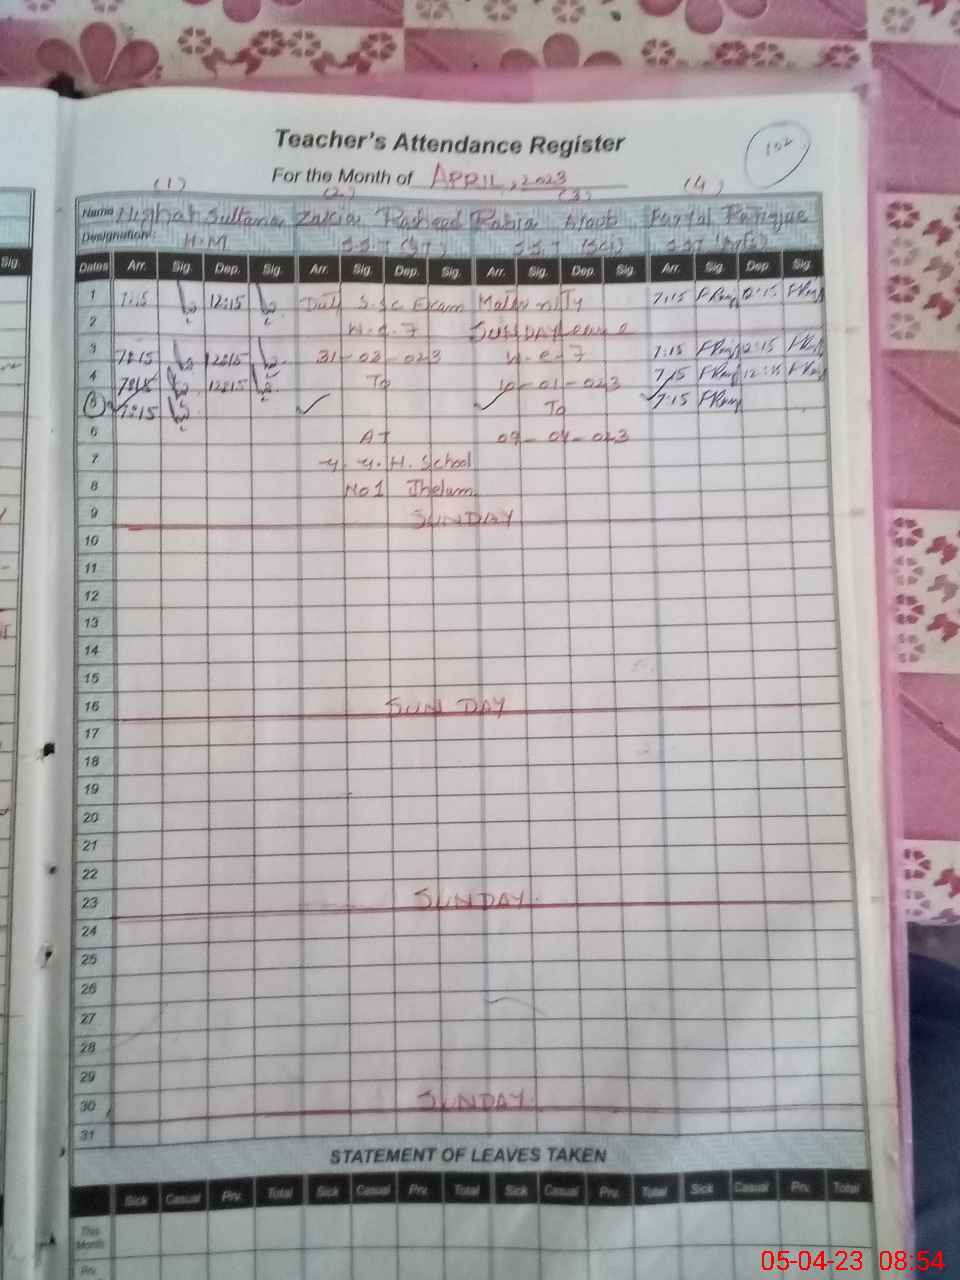 102
Teacher's Attendance Register
For the Month of APRIL, 2023
(1) (2) (3) (4)
Name Nighat Sultana Zakia Rasheed Rabia Ayoub
Designation: H.M S.S.T S.S.T (Sci) S.S.T
Sig.
Dates Arr. Sig. Dep. Sig. Arr. Sig. Dep. Sig. Arr. Sig. Dep. Sig. Arr. Sig. Dep Sig.
1 7:15 12:15 Duty S.SC Exam Maternity 7:15 12:15
2 W.e.f SUNDAY Leave
3 7:15 12:15 31-03-023 W.e.f 7:15 12:15
4 7:15 12:15 To 10-01-023 7:15 12:15
5 7:15 To 7:15
6 AT 09-04-023
7 H. School
8 No 1 Jhelum
9 SUNDAY
10
11
12
13
14
15
16 SUNDAY
17
18
19
20
21
22
23 SUNDAY
24
25
26
27
28
29
30 SUNDAY
31
STATEMENT OF LEAVES TAKEN
Sick Casual Prv. Total Sick Casual Prv. Total Sick Casual Prv. Total Sick Casual Prv. Total
This Month
Prv.
05-04-23 08:54